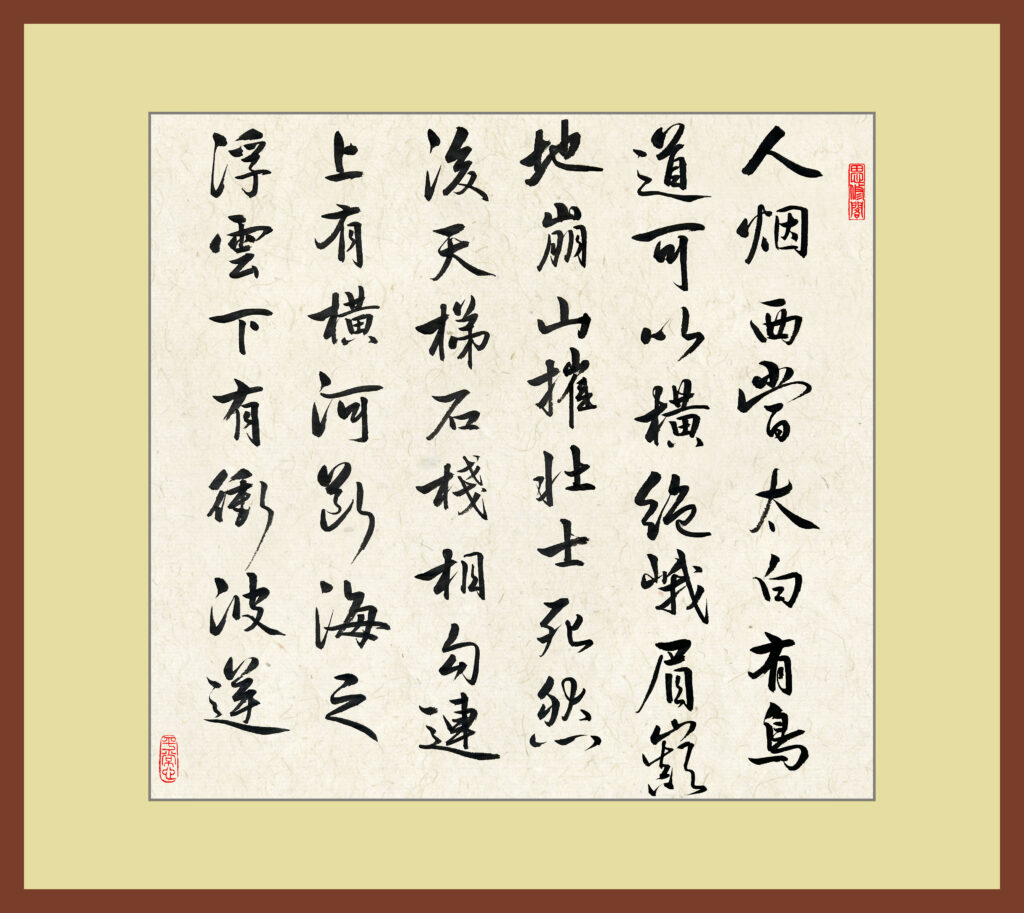 思修閣
人烟西當太白有鳥
道可以橫絕峨眉巔
地崩山摧壯士死然
後天梯石棧相勾連
上有橫河斷海之
浮雲下有衝波逆
平常心